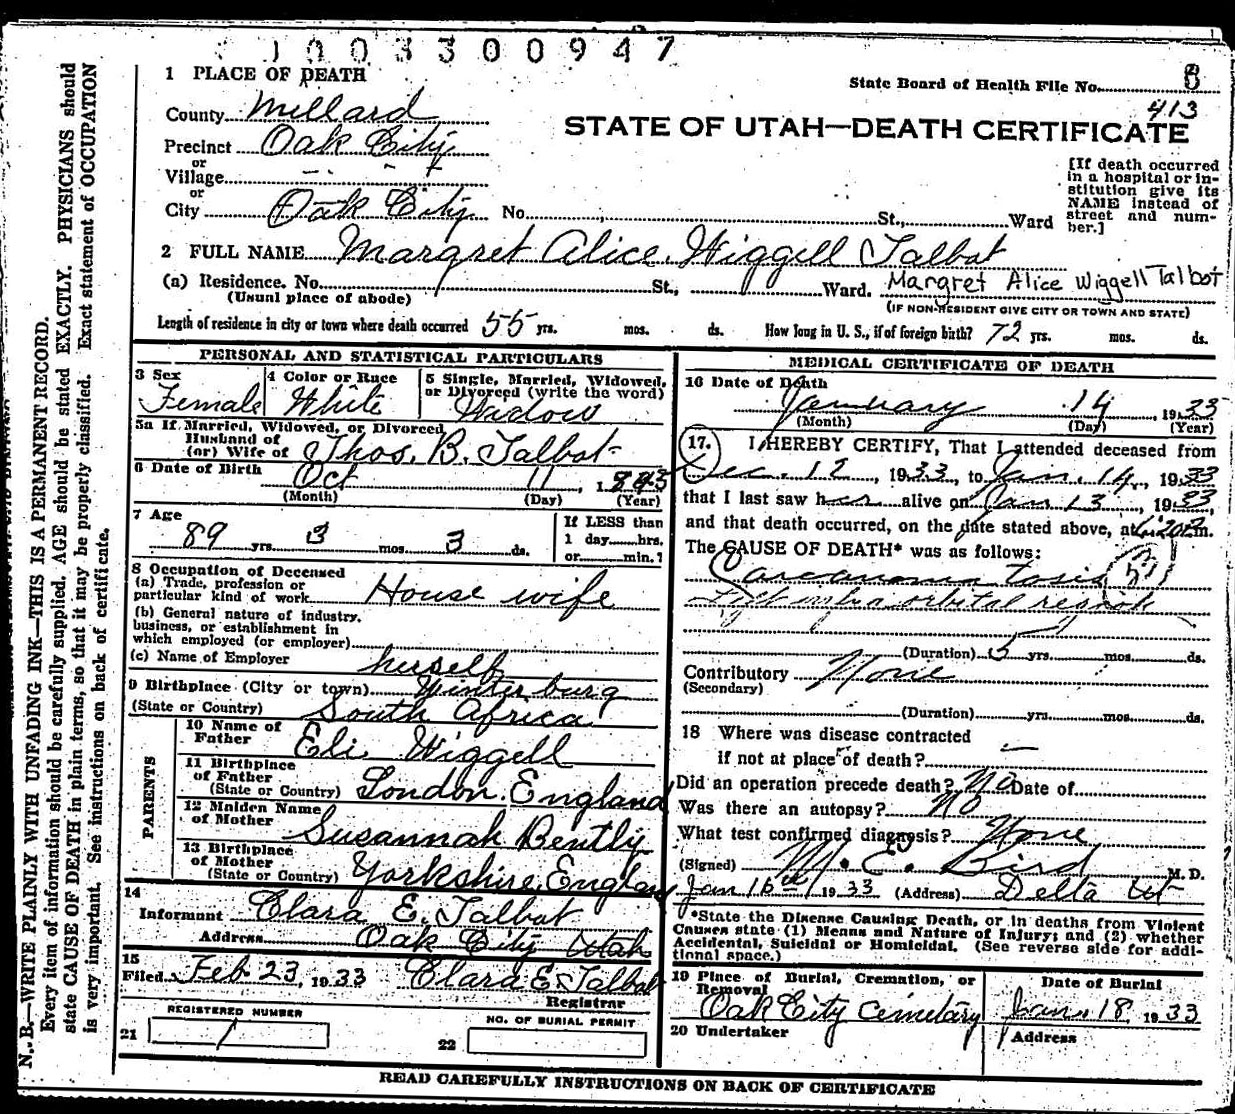 1003300947
1 PLACE OF DEATH
State Board of Health File No. 8
413
County Millard
STATE OF UTAH—DEATH CERTIFICATE
Precinct Oak City
or
Village
or
City Oak City No. St., Ward
[If death occurred
in a hospital or in-
stitution give its
NAME instead of
street and num-
ber.]
2 FULL NAME Margret Alice Wiggell Talbot
(a) Residence. No. St., Ward. Margret Alice Wiggell Talbot
(Usual place of abode)
(IF NON-RESIDENT GIVE CITY OR TOWN AND STATE)
Length of residence in city or town where death occurred 55 yrs. mos. ds. How long in U. S., if of foreign birth? 72 yrs. mos. ds.
PERSONAL AND STATISTICAL PARTICULARS
3 Sex
Female
4 Color or Race
White
5 Single, Married, Widowed,
or Divorced (write the word)
Widow
5a If Married, Widowed, or Divorced
Husband of
(or) Wife of Thos. B. Talbot
6 Date of Birth Oct 11, 1843
(Month) (Day) (Year)
7 Age
89 yrs. 3 mos. 3 ds.
If LESS than
1 day hrs.
or min.?
8 Occupation of Deceased
(a) Trade, profession or
particular kind of work House wife
(b) General nature of industry,
business, or establishment in
which employed (or employer)
(c) Name of Employer herself
9 Birthplace (City or town) Winterburg
(State or Country) South Africa
PARENTS
10 Name of
Father Eli Wiggell
11 Birthplace
of Father
(State or Country) London, England
12 Maiden Name
of Mother Susannah Bently
13 Birthplace
of Mother
(State or Country) Yorkshire, England
14
Informant Clara E. Talbot
Address Oak City Utah
15
Filed Feb 23, 1933 Clara E. Talbot
Registrar
REGISTERED NUMBER
21 1
NO. OF BURIAL PERMIT
22
MEDICAL CERTIFICATE OF DEATH
16 Date of Death
January 14, 1933
(Month) (Day) (Year)
17. I HEREBY CERTIFY, That I attended deceased from
Dec. 12, 1933, to Jan. 14, 1933
that I last saw her alive on Jan 13, 1933,
and that death occurred, on the date stated above, at m.
The CAUSE OF DEATH* was as follows:
Carcanoma tosis
Left infra orbital region
(Duration) 5 yrs. mos. ds.
Contributory None
(Secondary)
(Duration) yrs. mos. ds.
18 Where was disease contracted
if not at place of death?
Did an operation precede death? No Date of
Was there an autopsy? No
What test confirmed diagnosis? None
(Signed) M. E. Bird M. D.
Jan 16th, 1933 (Address) Delta Ut
*State the Disease Causing Death, or in deaths from Violent
Causes state (1) Means and Nature of Injury; and (2) whether
Accidental, Suicidal or Homicidal. (See reverse side for addi-
tional space.)
19 Place of Burial, Cremation, or
Removal
Oak City Cemetary
Date of Burial
Jan. 18 1933
20 Undertaker
Address
READ CAREFULLY INSTRUCTIONS ON BACK OF CERTIFICATE
N. B.—WRITE PLAINLY WITH UNFADING INK—THIS IS A PERMANENT RECORD.
Every item of information should be carefully supplied. AGE should be stated EXACTLY. PHYSICIANS should
state CAUSE OF DEATH in plain terms, so that it may be properly classified. Exact statement of OCCUPATION
is very important. See instructions on back of certificate.